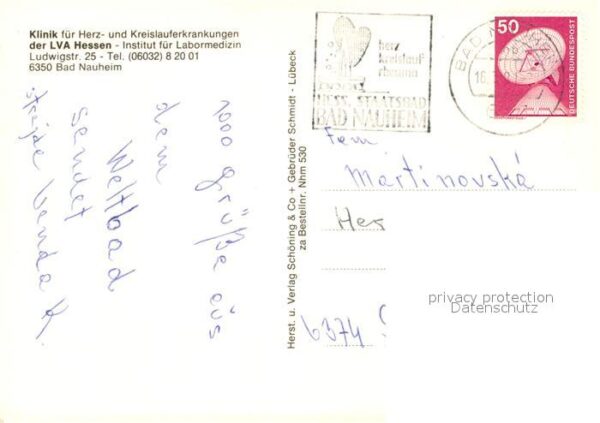 Klinik für Herz- und Kreislauferkrankungen
der LVA Hessen - Institut für Labormedizin
Ludwigstr. 25 - Tel. (06032) 8 20 01
6350 Bad Nauheim
1000 Grüße aus
dem
Weltbad
sendet
Herst. u. Verlag Schöning & Co + Gebrüder Schmidt - Lübeck
za Bestellnr. Nhm 530
herz
kreislauf
rheuma
HESS. STAATSBAD
BAD NAUHEIM
BAD NA
50
DEUTSCHE BUNDESPOST
Fam
Martinovská
Her
6374
privacy protection
Datenschutz